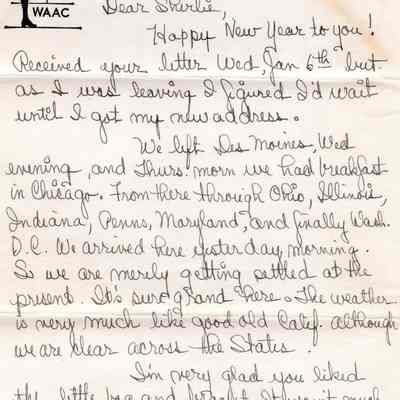 WAAC
Dear Sherlie,
Happy New Year to you!
Received your letter Wed, Jan 6th but
as I was leaving I figured I'd wait
until I got my new address.
We left Des Moines, Wed
evening, and Thurs. morn we had breakfast
in Chicago. From there through Ohio, Illinois,
Indiana, Penns, Maryland, and finally Wash.
D.C. We arrived here yesterday morning.
So we are merely getting settled at the
present. It's sure grand here. The weather
is very much like good old Calif. although
we are clear across the States.
I'm very glad you liked
the little